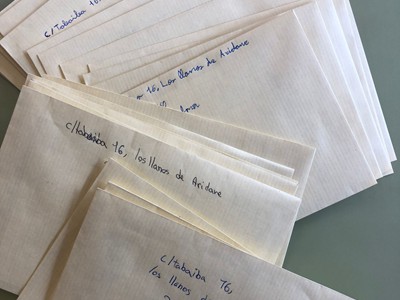 c/Tabaiba 16,
16, Los Llanos de Aridane
c/tabaiba 16, los llanos de Aridane
c/tabaiba 16,
los llanos de